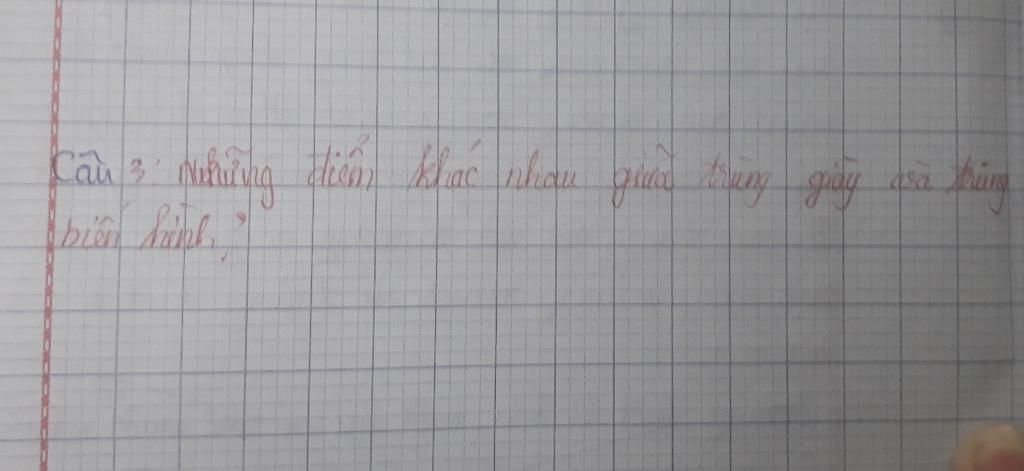 Câu 3: Những điểm khác nhau giữa trùng giày và trùng
biến hình?